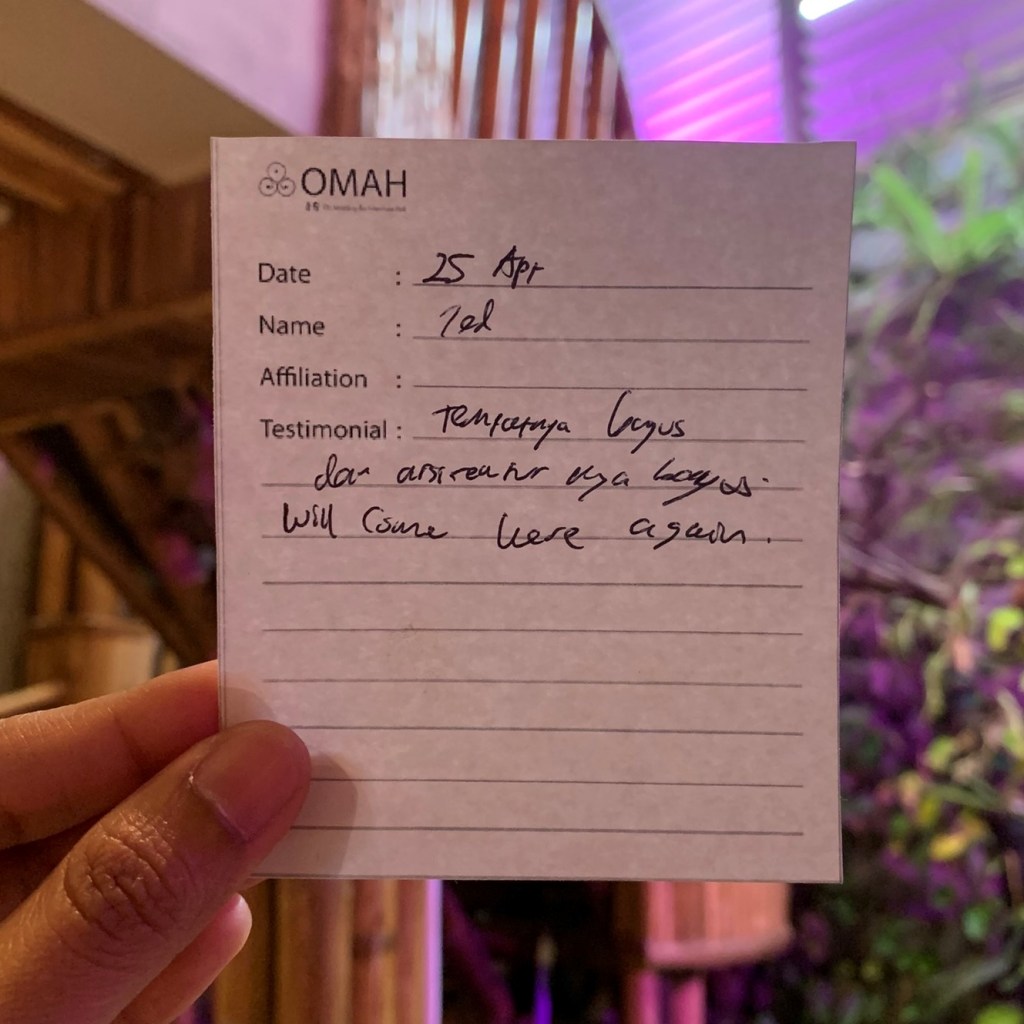 OMAH
Date : 25 Apr
Name : Ted
Affiliation :
Testimonial : Tempatnya bagus
dan arsitektur nya bagus.
Will come here again.